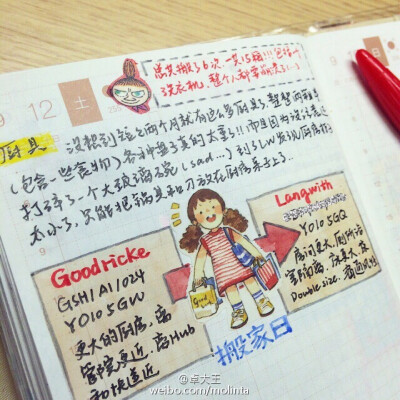 9 12 土
总共搬了6次，一共15箱!!!包括一个
洗衣机，整个人都要崩溃了
厨具 没想到短短两个月就有这么多厨具了，整整两箱
(包含一些食物) 各种盘子真的太重了!!!而且因为没注意
打碎了一个大玻璃碗 (sad...) 到了LW发现厨房
太小了，只能把锅具和刀放在厨房桌子上了...
Goodricke
GSH1A11024
YO10 5GW
更大的厨房，离
学院更近，离Hub
和快递近
Langwith
YO10 5GQ
房间更大，厕所洁
Double size.
Good
搬家日
@卓大王
weibo.com/molinta